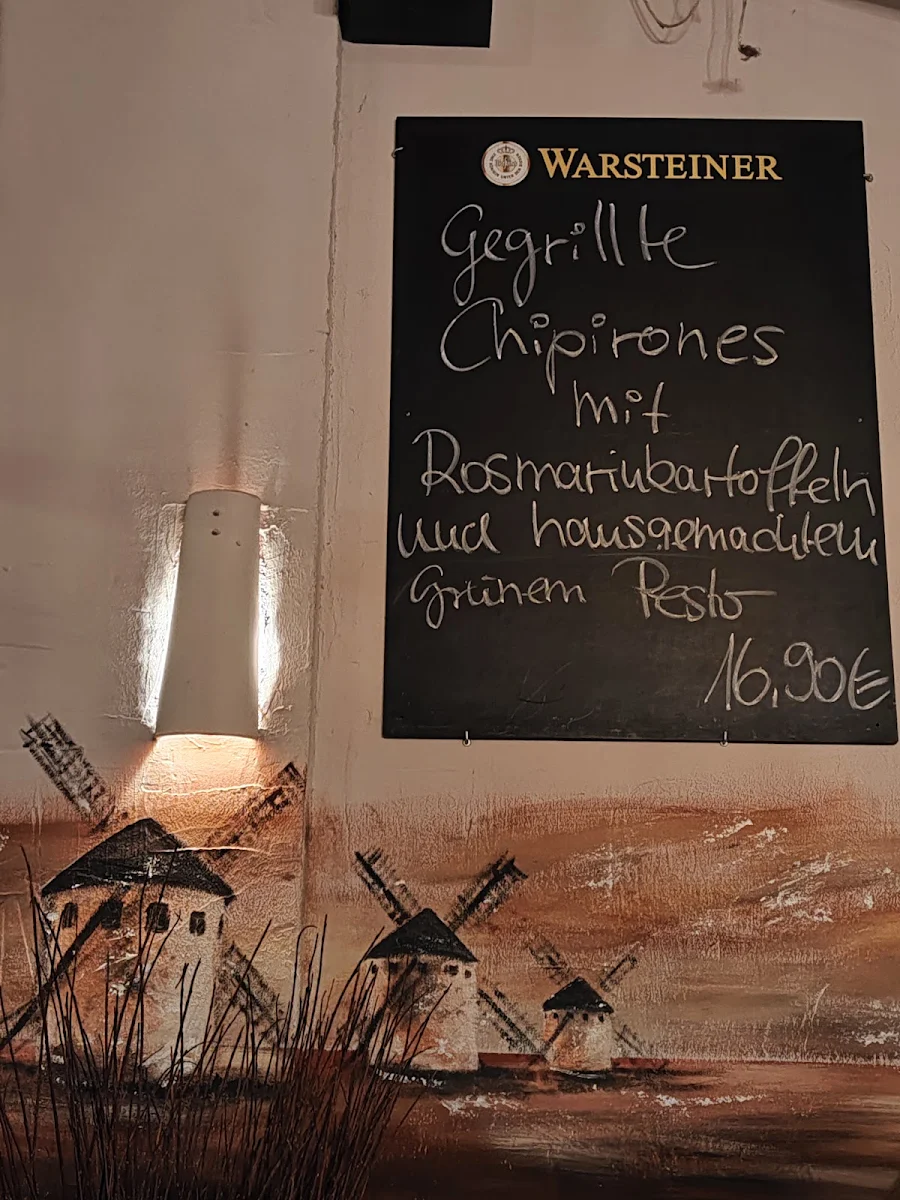 WARSTEINER
Gegrillte
Chipirones
mit
Rosmarinkartoffeln
und hausgemachtem
Grünem Pesto
16,90€